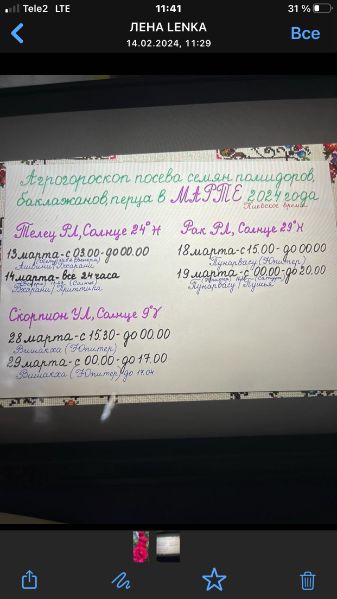 Tele2 LTE 11:41 31 %
ЛЕНА LENKA
14.02.2024, 11:29
Все
Агрогороскоп посева семян помидоров,
баклажанов, перца в МАРТЕ 2024 года
Киевское время
Телец РЛ, Солнце 24°
13 марта - с 03.00 - до 00.00
Ашвини / Бхарани
14 марта - все 24 часа
Бхарани / Криттика
Скорпион УЛ, Солнце 9°
28 марта - с 15.30 - до 00.00
Вишакха (Юпитер)
29 марта - с 00.00 - до 17.00
Вишакха (Юпитер) до 17.04
Рак РЛ, Солнце 29°
18 марта - с 15.00 - до 00.00
Пунарвасу (Юпитер)
19 марта - с 00.00 - до 20.00
Пунарвасу / Пушья